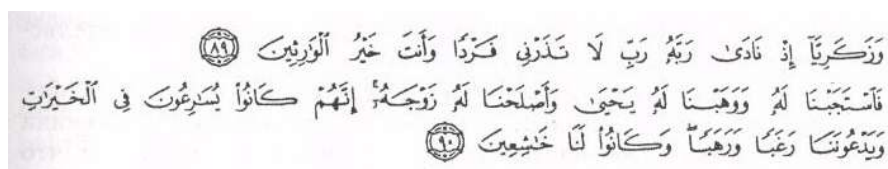 وَزَكَرِيَّآ إِذْ نَادَىٰ رَبَّهُۥ رَبِّ لَا تَذَرْنِى فَرْدًا وَأَنتَ خَيْرُ ٱلْوَٰرِثِينَ ٨٩
فَٱسْتَجَبْنَا لَهُۥ وَوَهَبْنَا لَهُۥ يَحْيَىٰ وَأَصْلَحْنَا لَهُۥ زَوْجَهُۥٓ ۚ إِنَّهُمْ كَانُوا۟ يُسَٰرِعُونَ فِى ٱلْخَيْرَٰتِ
وَيَدْعُونَنَا رَغَبًا وَرَهَبًا ۖ وَكَانُوا۟ لَنَا خَٰشِعِينَ ٩٠